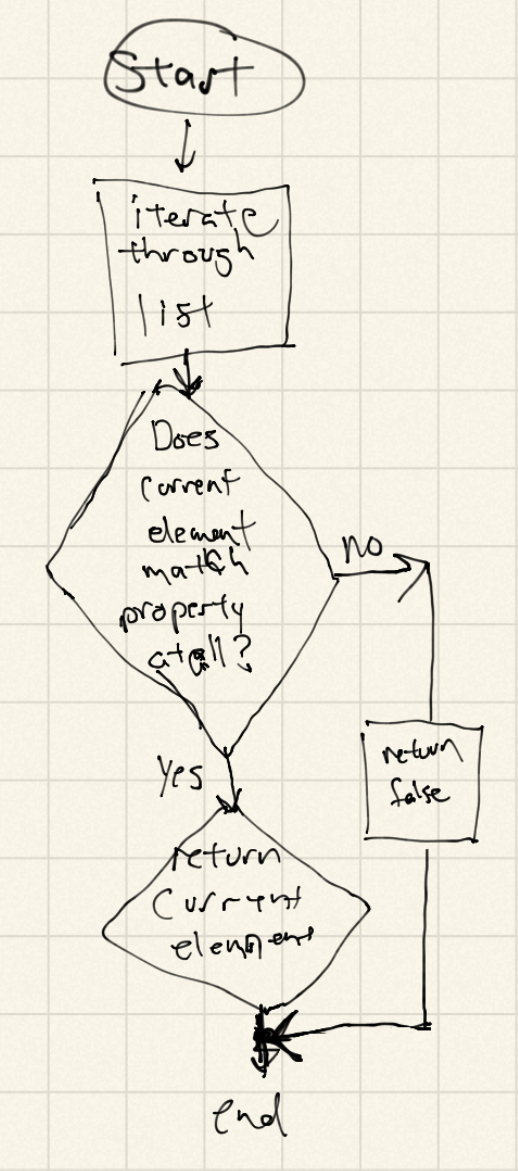 Start
iterate
through
list
Does
current
element
match
property
at all?
no
return
false
Yes
return
Current
element
end